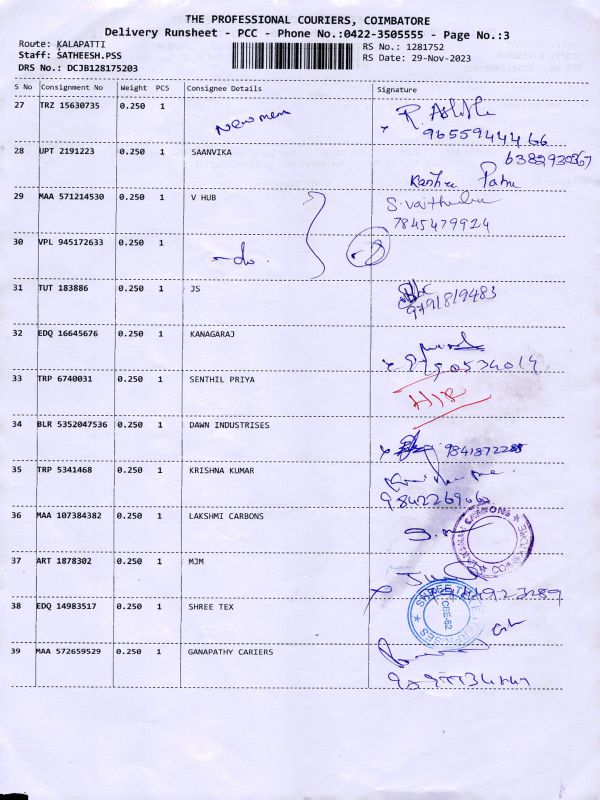 THE PROFESSIONAL COURIERS, COIMBATORE
Delivery Runsheet - PCC - Phone No.:0422-3505555 - Page No.:3
Route: KALAPATTI
Staff: SATHEESH.PSS
DRS No.: DCJB128175203
RS No.: 1281752
RS Date: 29-Nov-2023
S No Consignment No Weight PCS Consignee Details Signature
27 TRZ 15630735 0.250 1
96559444466
28 UPT 2191223 0.250 1 SAANVIKA
6382930367
29 MAA 571214530 0.250 1 V HUB
7845479924
30 VPL 945172633 0.250 1 -do.
31 TUT 183886 0.250 1 JS
9791819483
32 EDQ 16645676 0.250 1 KANAGARAJ
33 TRP 6740031 0.250 1 SENTHIL PRIYA
34 BLR 5352047536 0.250 1 DAWN INDUSTRISES
35 TRP 5341468 0.250 1 KRISHNA KUMAR
36 MAA 107384382 0.250 1 LAKSHMI CARBONS
37 ART 1878302 0.250 1 MJM
38 EDQ 14983517 0.250 1 SHREE TEX
CBE-62
39 MAA 572659529 0.250 1 GANAPATHY CARIERS